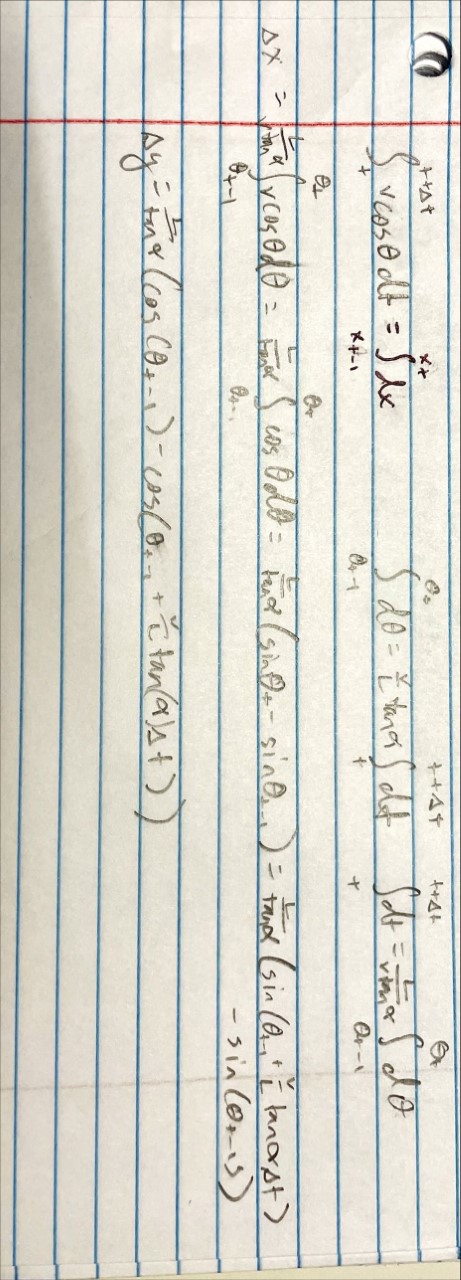 ∫_t^{t+Δt} v cosθ dt = ∫_{x_{t-1}}^{x_t} dx    ∫_{θ_{t-1}}^{θ_t} dθ = v/L tanα ∫_t^{t+Δt} dt    ∫_t^{t+Δt} dt = L/(v tanα) ∫_{θ_{t-1}}^{θ_t} dθ
Δx = L/(v tanα) ∫_{θ_{t-1}}^{θ_t} v cosθ dθ = L/tanα ∫_{θ_{t-1}}^{θ_t} cosθ dθ = L/tanα (sinθ_t - sinθ_{t-1}) = L/tanα (sin(θ_{t-1} + v/L tanα Δt)
- sin(θ_{t-1}))
Δy = L/tanα (cos(θ_{t-1}) - cos(θ_{t-1} + v/L tan(α)Δt))